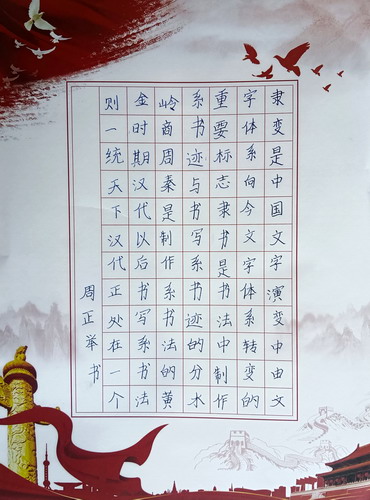 隶变是中国文字演变中由文
字体系向今文字体系转变的
重要标志隶书是书法中制作
系书迹与书写系书迹的分水
岭商周秦是制作系书法的黄
金时期汉代以后书写系书法
则一统天下汉代正处在一个
周正举书